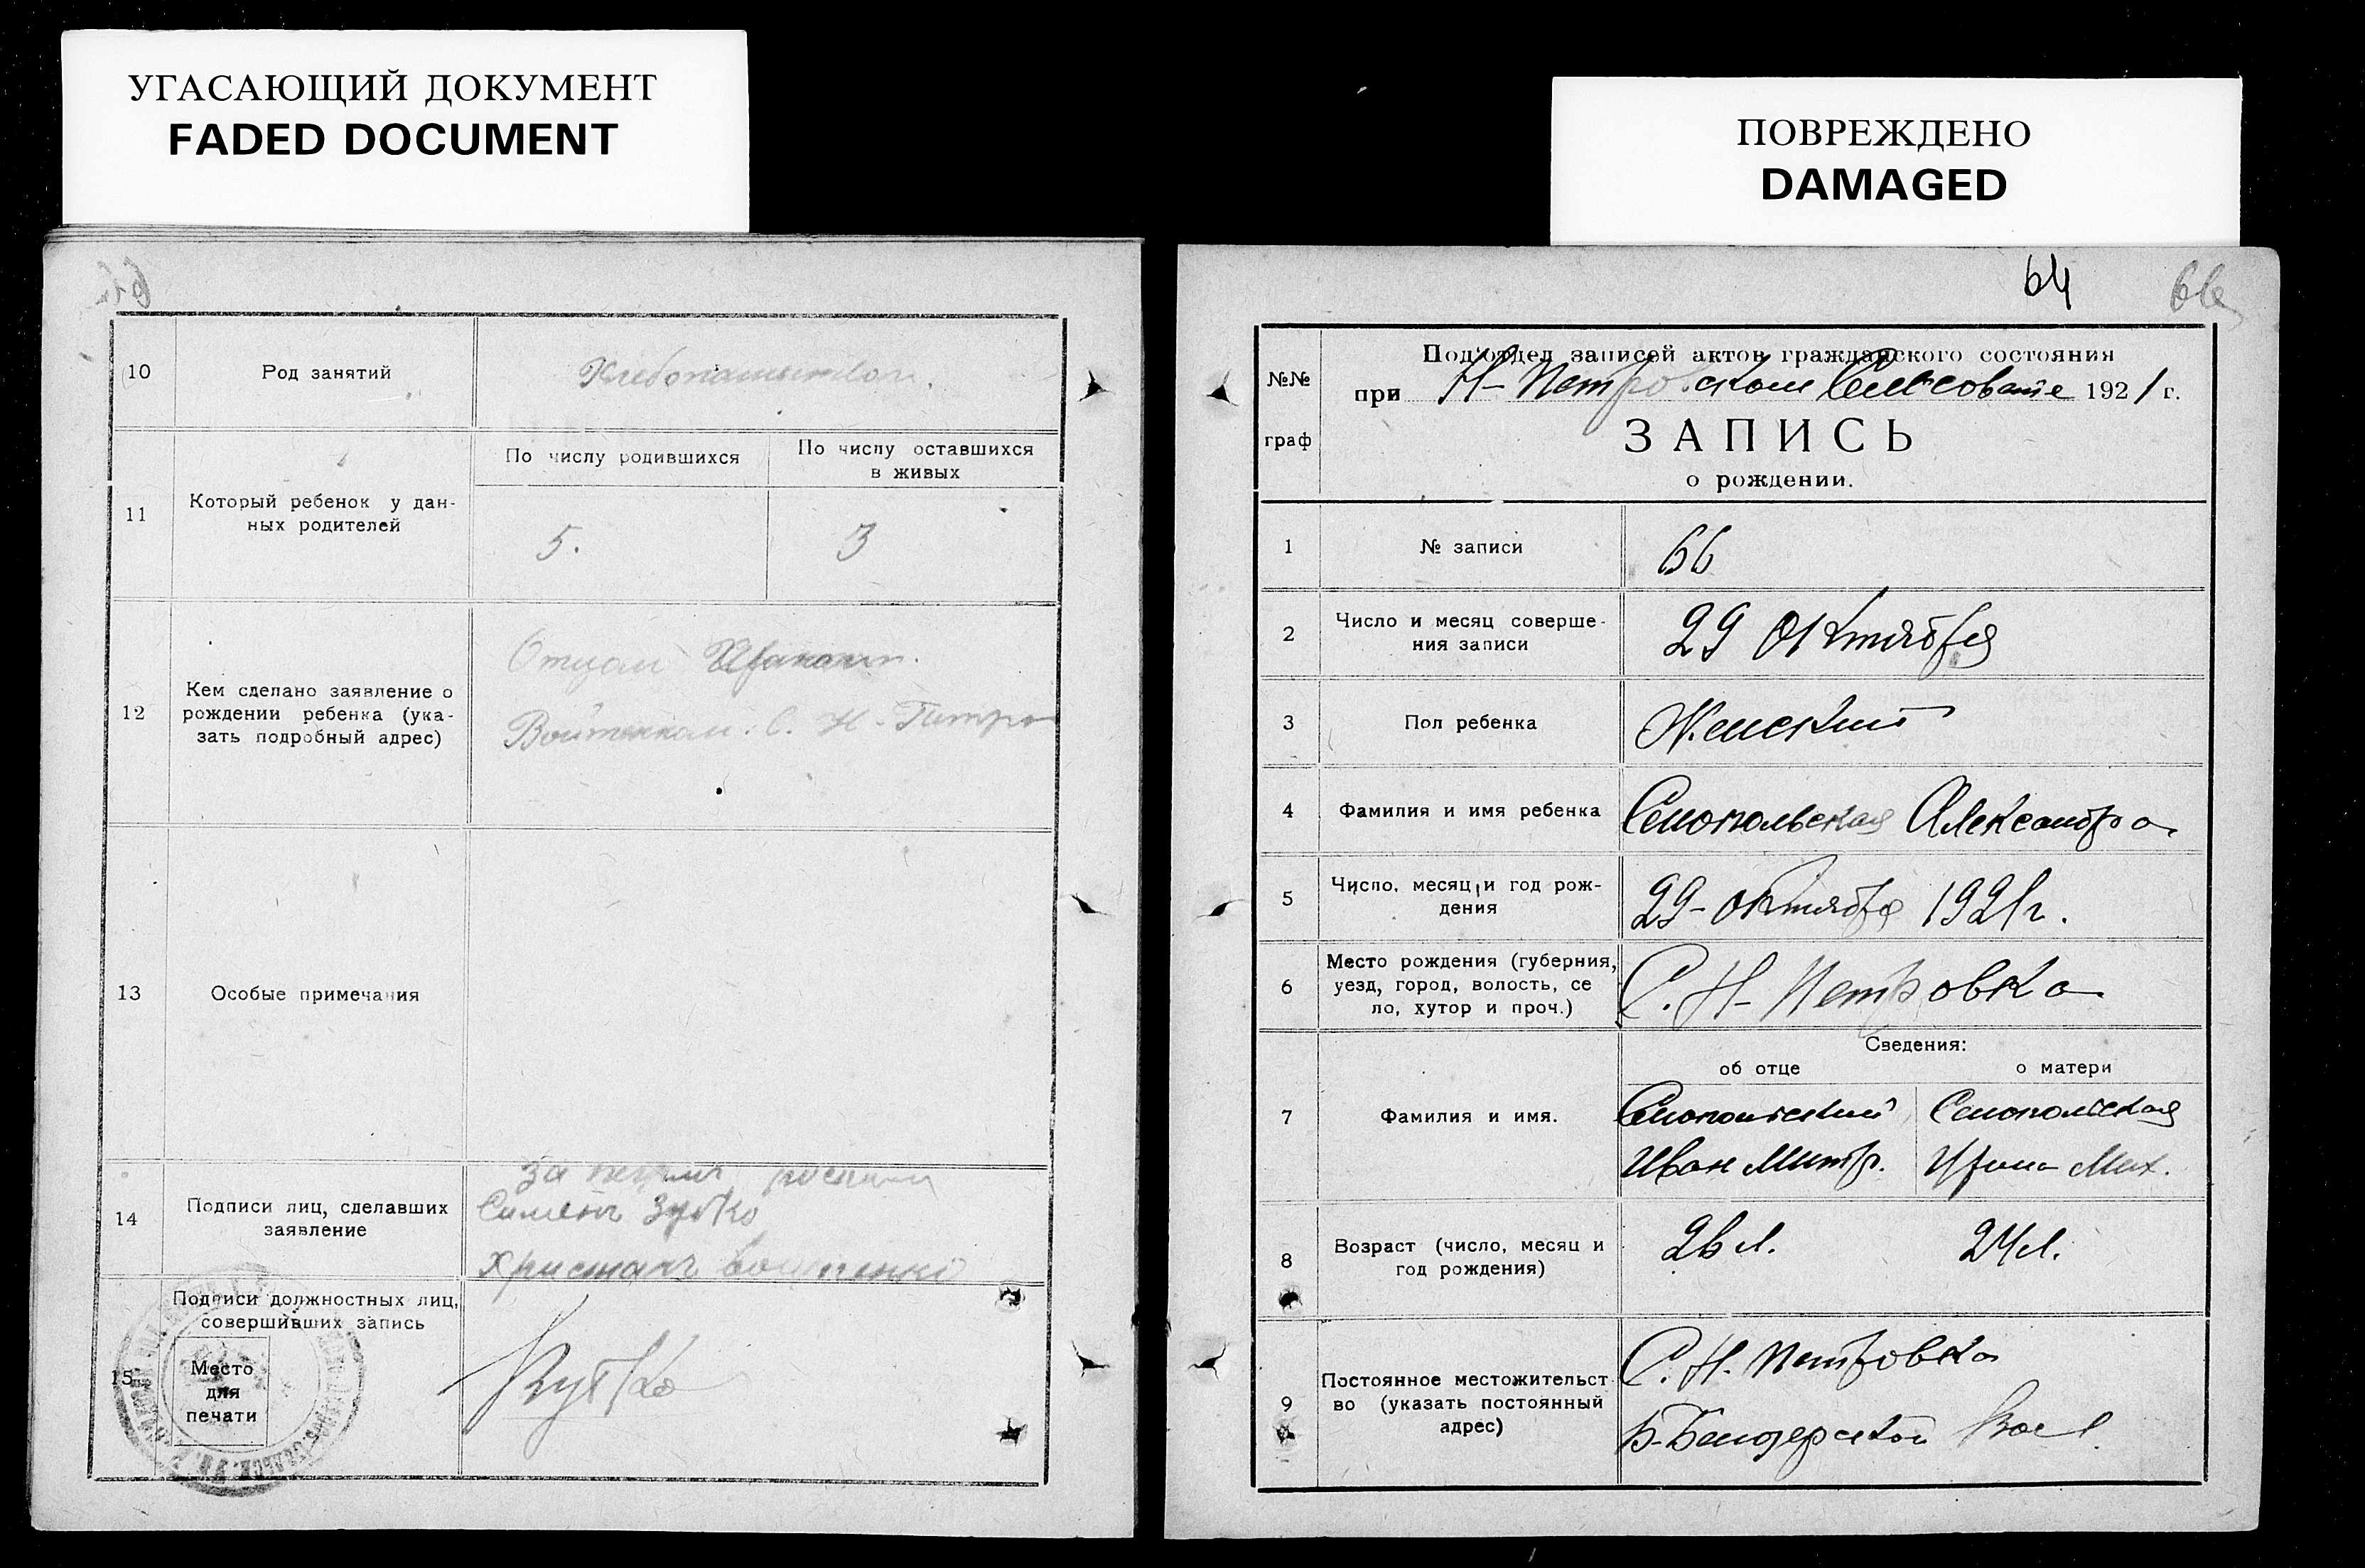 УГАСАЮЩИЙ ДОКУМЕНТ
FADED DOCUMENT
10
Род занятий
11
Который ребенок у дан-
ных родителей
По числу родившихся
По числу оставшихся
в живых
5.
3
12
Кем сделано заявление о
рождении ребенка (ука-
зать подробный адрес)
Отцом
Войтенком. С. Н-Петро
13
Особые примечания
14
Подписи лиц, сделавших
заявление
За
Зубко
15
Подписи должностных лиц,
совершивших запись
Место
для
печати
ПОВРЕЖДЕНО
DAMAGED
64
№№
граф
Под'отдел записей актов гражданского состояния
при Н-Петровском 1921 г.
ЗАПИСЬ
о рождении.
1
№ записи
66
2
Число и месяц соверше-
ния записи
29 Октября
3
Пол ребенка
Женский
4
Фамилия и имя ребенка
Сенопольская Александра
5
Число, месяц и год рож-
дения
29-октября 1921г.
6
Место рождения (губерния,
уезд, город, волость, се
ло, хутор и проч.)
С. Н-Петровка
Сведения:
об отце
о матери
7
Фамилия и имя.
Сенопольский
Иван Митр.
Сенопольская
Ирина Мих.
8
Возраст (число, месяц и
год рождения)
26 л.
24 л.
9
Постоянное местожительст
во (указать постоянный
адрес)
С. Н. Петровка